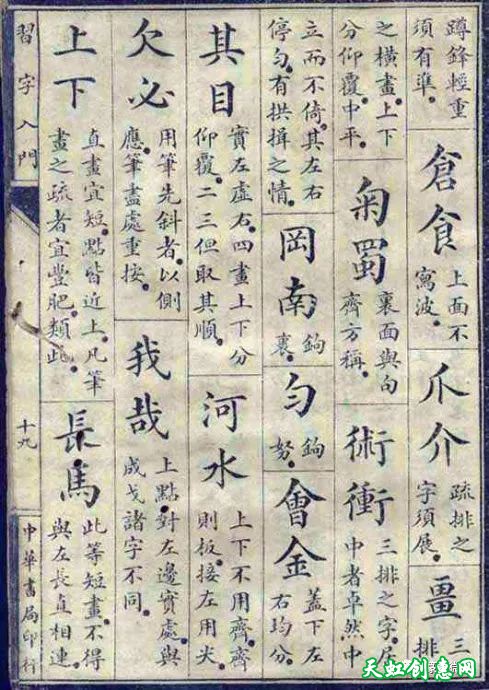 蹲鋒輕重
須有準。
倉食
上面不
寫波。
爪介
疏排之
字須展。
畺
三
排
之橫畫上下
分仰覆中平。
菊蜀
裏面與勹
齊方稱。
術衝
三排之字居
中者卓然中
立而不倚。其左右
停勻有拱揖之情。
岡南
鉤
裏。
勻
鉤
努。
會金
蓋下左
右均分。
其目
實左虛右。四畫上下分
仰覆。二三但取其順。
河水
上下不用齊。齊
則板。接左用尖。
欠必
用筆先斜者。以側
應。筆盡處重按。
我哉
上點對左邊實處。與
成戈諸字不同。
上下
直畫宜短。點皆近上。凡筆
畫之疏者宜豐肥。類此。
長馬
此等短畫。不得
與左長直相連。
習字入門
十九
中華書局印行
天虹创意网